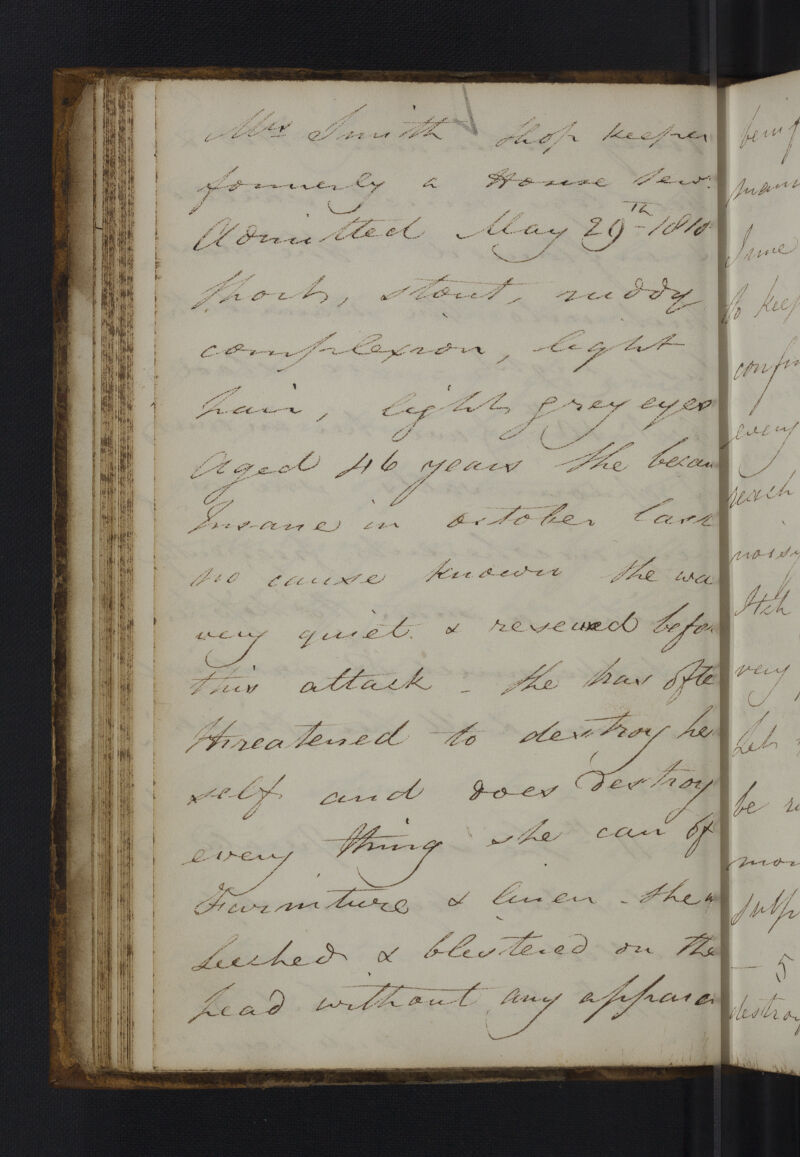 Mrs Smith Shop keeper
formerly a House Serv.
Admitted May 29th 1818
Short, stout, ruddy
complexion, light
hair, light grey eyes
Aged 46 years She becam
Insane in october last
no cause known She wa
very quiet & reserved befor
this attack - She has ofte
threatened to destroy he
self and does destroy
every thing she can of
Furniture & linen - She
Leeched & blistered on the
head without any apparen
being
mann
June
to keep
confin
every
reach
noisy
Itch
very
Let
be
mor
Sulp
- 5
destroy